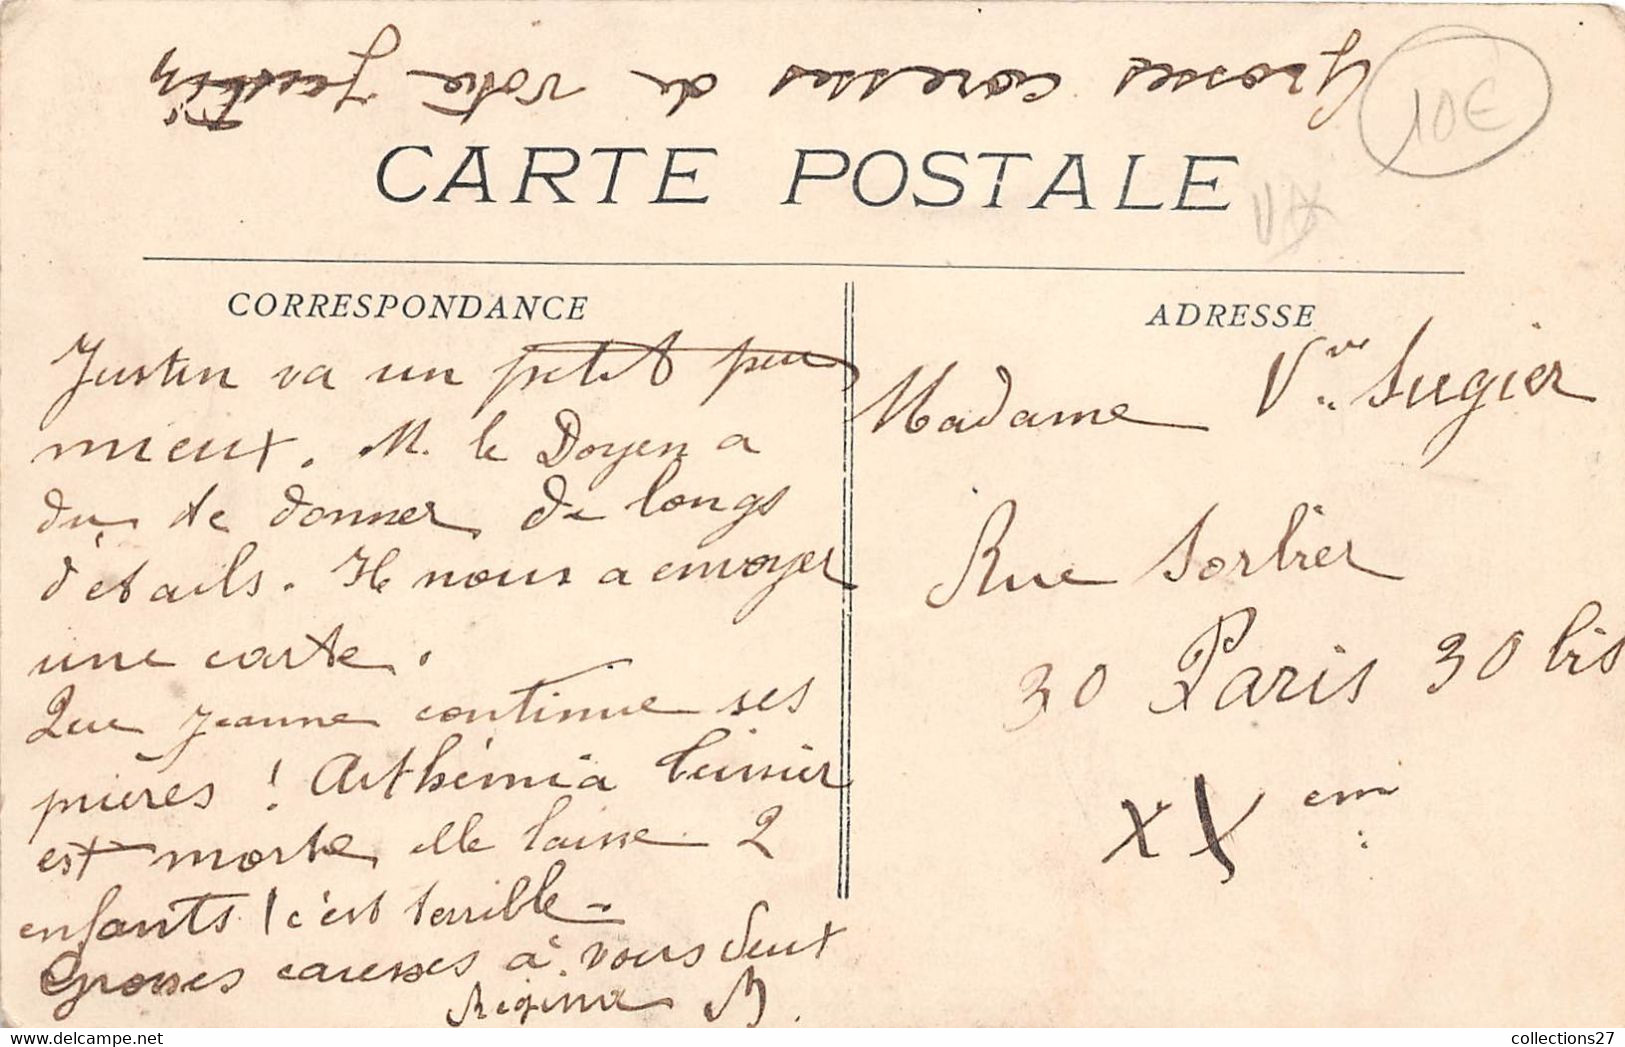 Grosses caresses de votre Justin
10€
CARTE POSTALE
CORRESPONDANCE
Justin va un petit peu
mieux. M. le Doyen a
du te donner de longs
détails. Il nous a envoyer
une carte.
Que Jeanne continue ses
prières ! Arthémia
est morte elle laisse 2
enfants ! c'est terrible -
Grosses caresses à vous deux
Regina
ADRESSE
Madame Vve Sugier
Rue Sorbier
30 Paris 30 bis
XX em
collections27